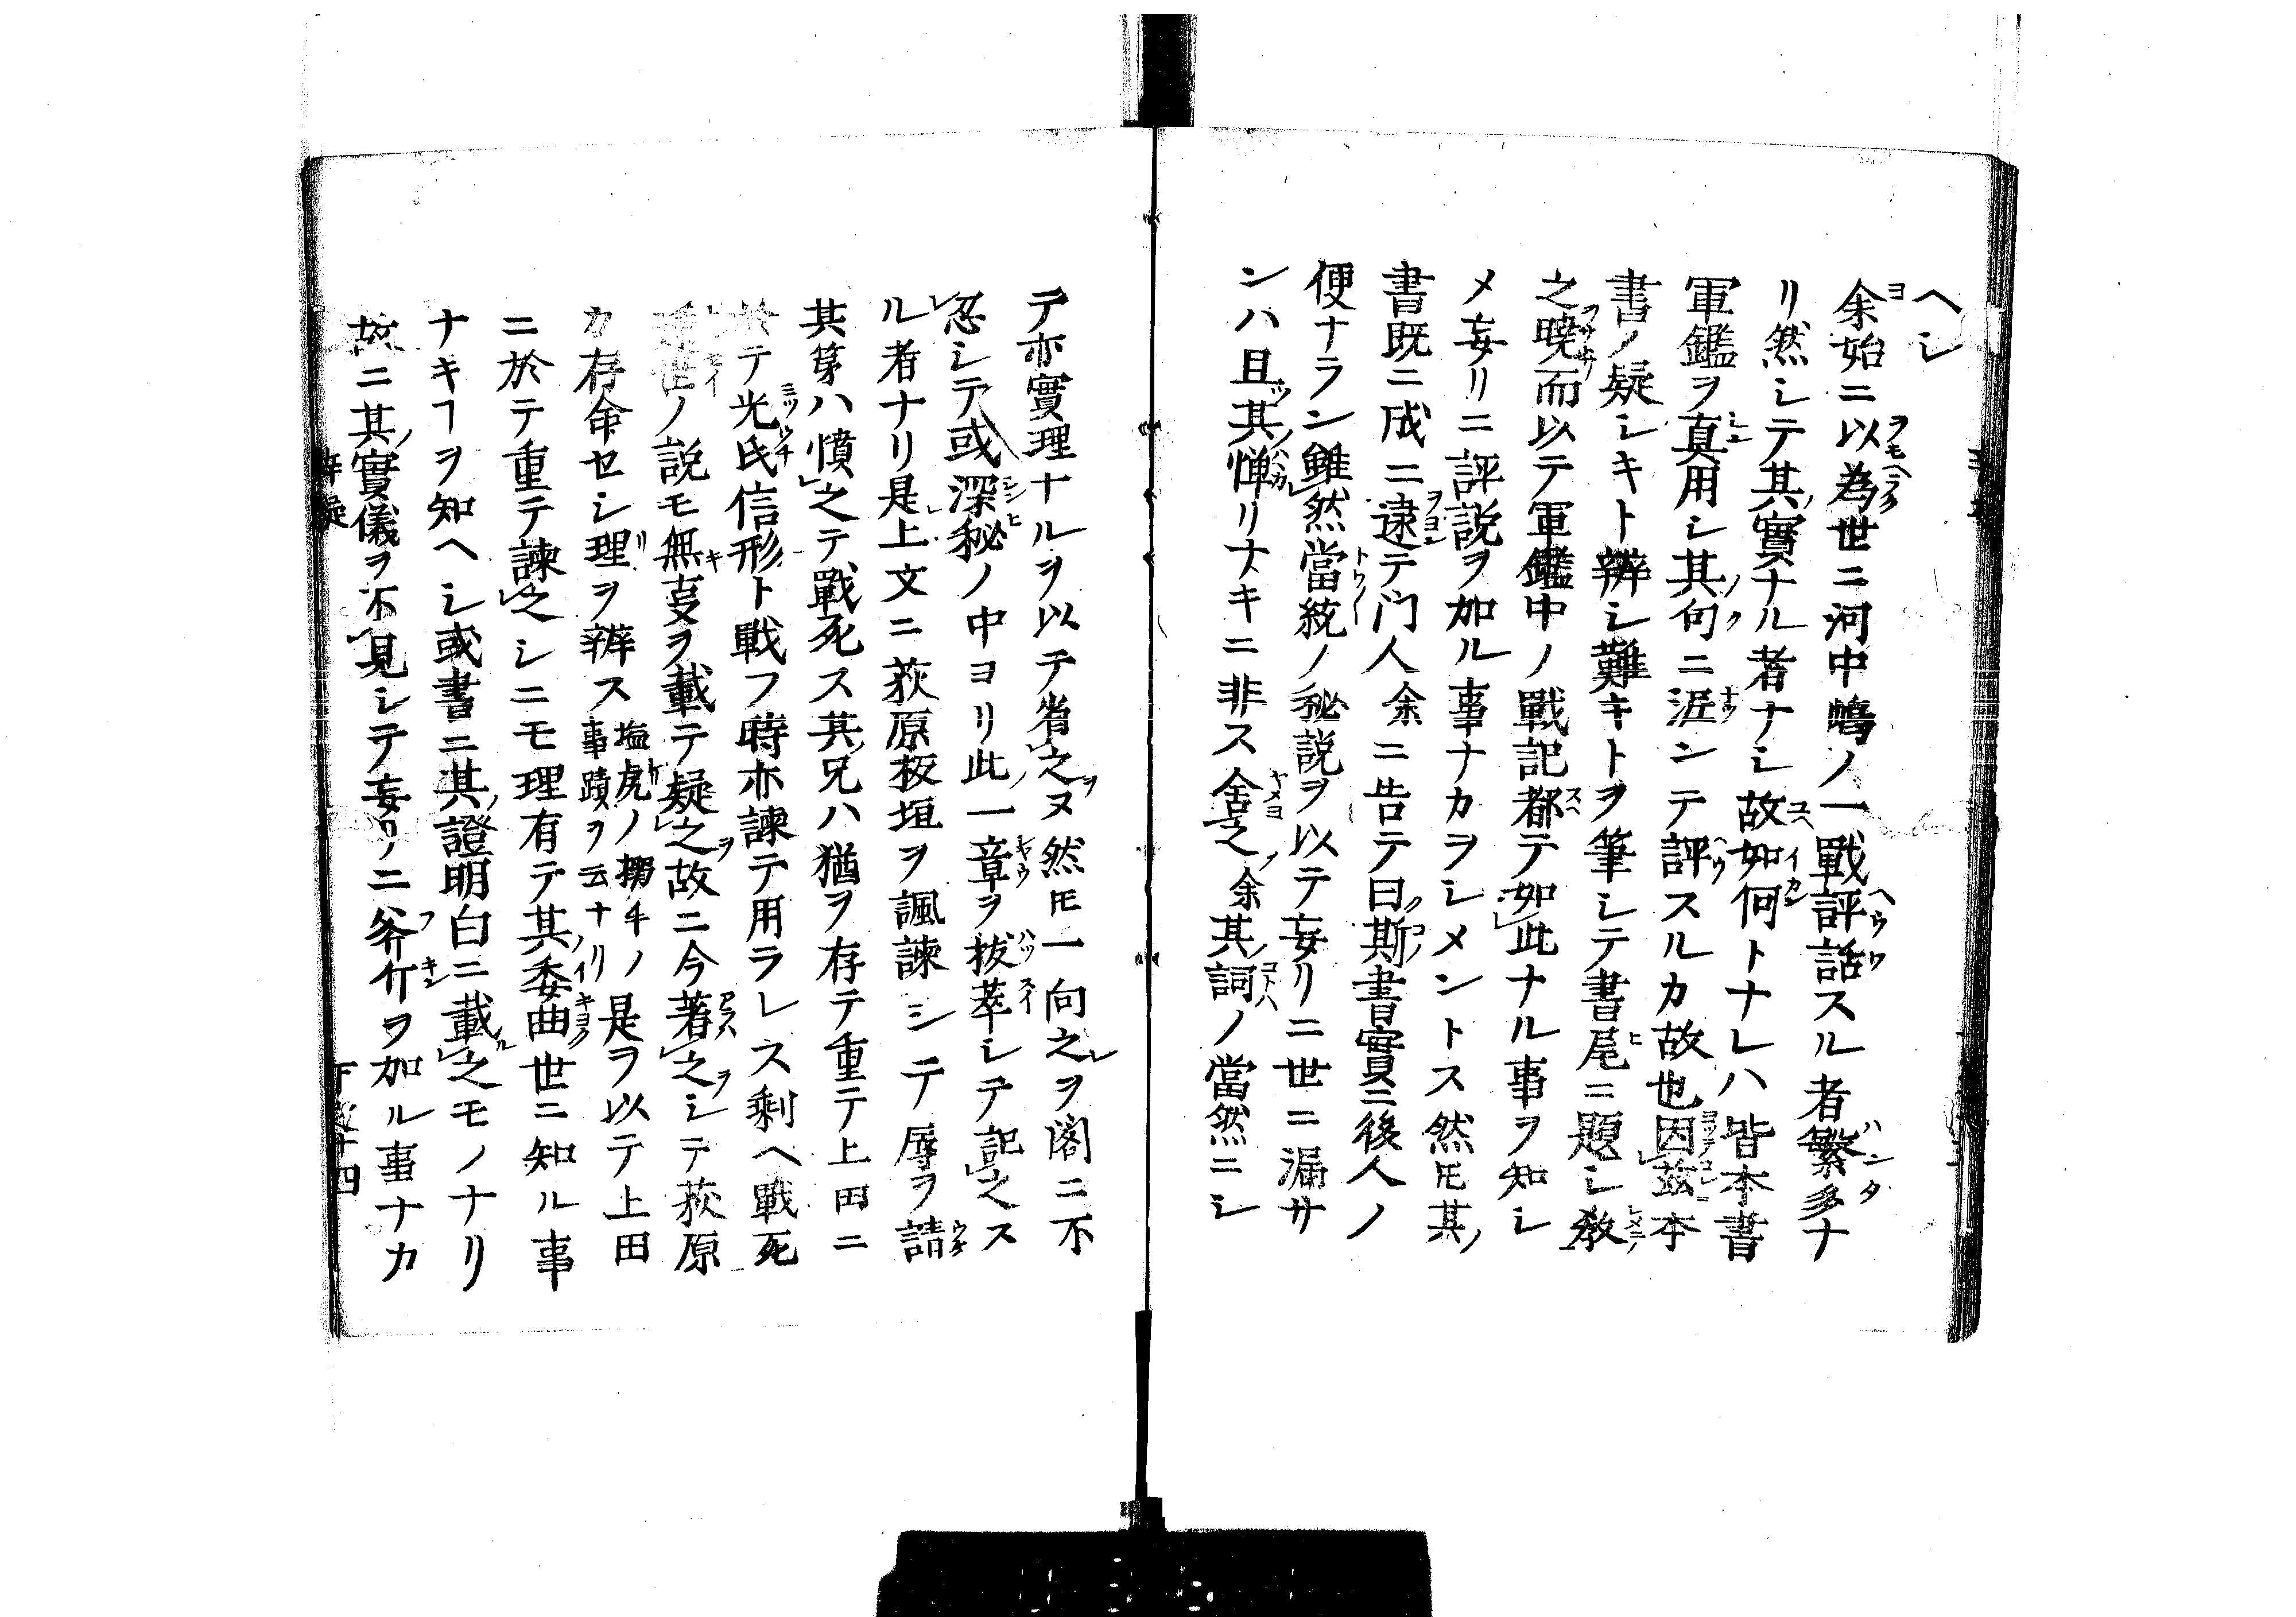 ヘシ
余始ニ以為世ニ河中嶋ノ一戰評話スル者繁多ナ
リ然シテ其實ナル者ナシ故如何トナレハ皆本書
軍鑑ヲ真用シ其句ニ泥ンテ評スルカ故也因茲本
書ノ疑シキト辨シ難キトヲ筆シテ書尾ニ題シ教
之暁而以テ軍鑑中ノ戰記都テ如此ナル事ヲ知シ
メ妄リニ評説ヲ加ル事ナカヲシメントス然トモ其
書既ニ成ニ逮テ门人余ニ告テ曰斯書實ニ後人ノ
便ナラン雖然當統ノ秘説ヲ以テ妄リニ世ニ漏サ
ンハ且其憚リナキニ非ス舍之余其詞ノ當然ニシ
テ亦實理ナルヲ以テ肯之ヌ然トモ一向之ヲ閣ニ不
忍シテ或深秘ノ中ヨリ此一章ヲ抜萃シテ記之ス
ル者ナリ是上文ニ荻原板垣ヲ諷諫シテ辱ヲ請
其第ハ憤之テ戰死ス其兄ハ猶ヲ存テ重テ上田ニ
於テ光氏信形ト戰フ時亦諫テ用ラレス剩ヘ戰死
ノ説モ無㕝ヲ載テ疑之故ニ今著之シテ荻原
カ存命セシ理ヲ辨ス塩虎ノ搦手ノ事蹟ヲ云ナリ是ヲ以テ上田
ニ於テ重テ諫之シニモ理有テ其委曲世ニ知ル事
ナキヿヲ知ヘシ或書ニ其證明白ニ載之モノナリ
故ニ其實儀ヲ不見シテ妄リニ斧斤ヲ加ル事ナカ
下 十四